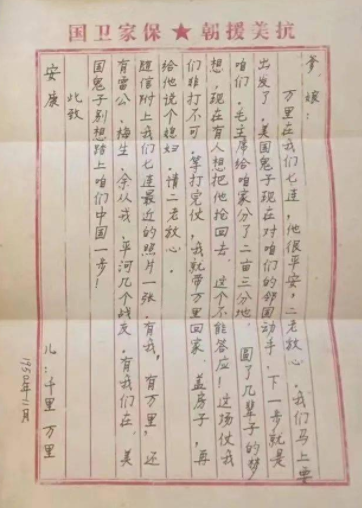 抗美援朝★保家卫国
爹、娘：
万里在我们七连，他很平安，二老放心。我们马上要
出发了，美国鬼子现在对咱们的邻国动手，下一步就是
咱们，毛主席给咱家分了二亩三分地，圆了几辈子的梦
想，现在有人想把他抢回去，这个不能答应！这场仗我
们非打不可，等打完仗，我就带万里回家，盖房子，再
给他说个媳妇，请二老放心。
随信附上我们七连最近的照片一张，有我，有万里，还
有雷公，梅生，余从戎，平河几个战友，有我们在，美
国鬼子别想踏上咱们中国一步！
此致
安康
儿：千里 万里
1950年11月